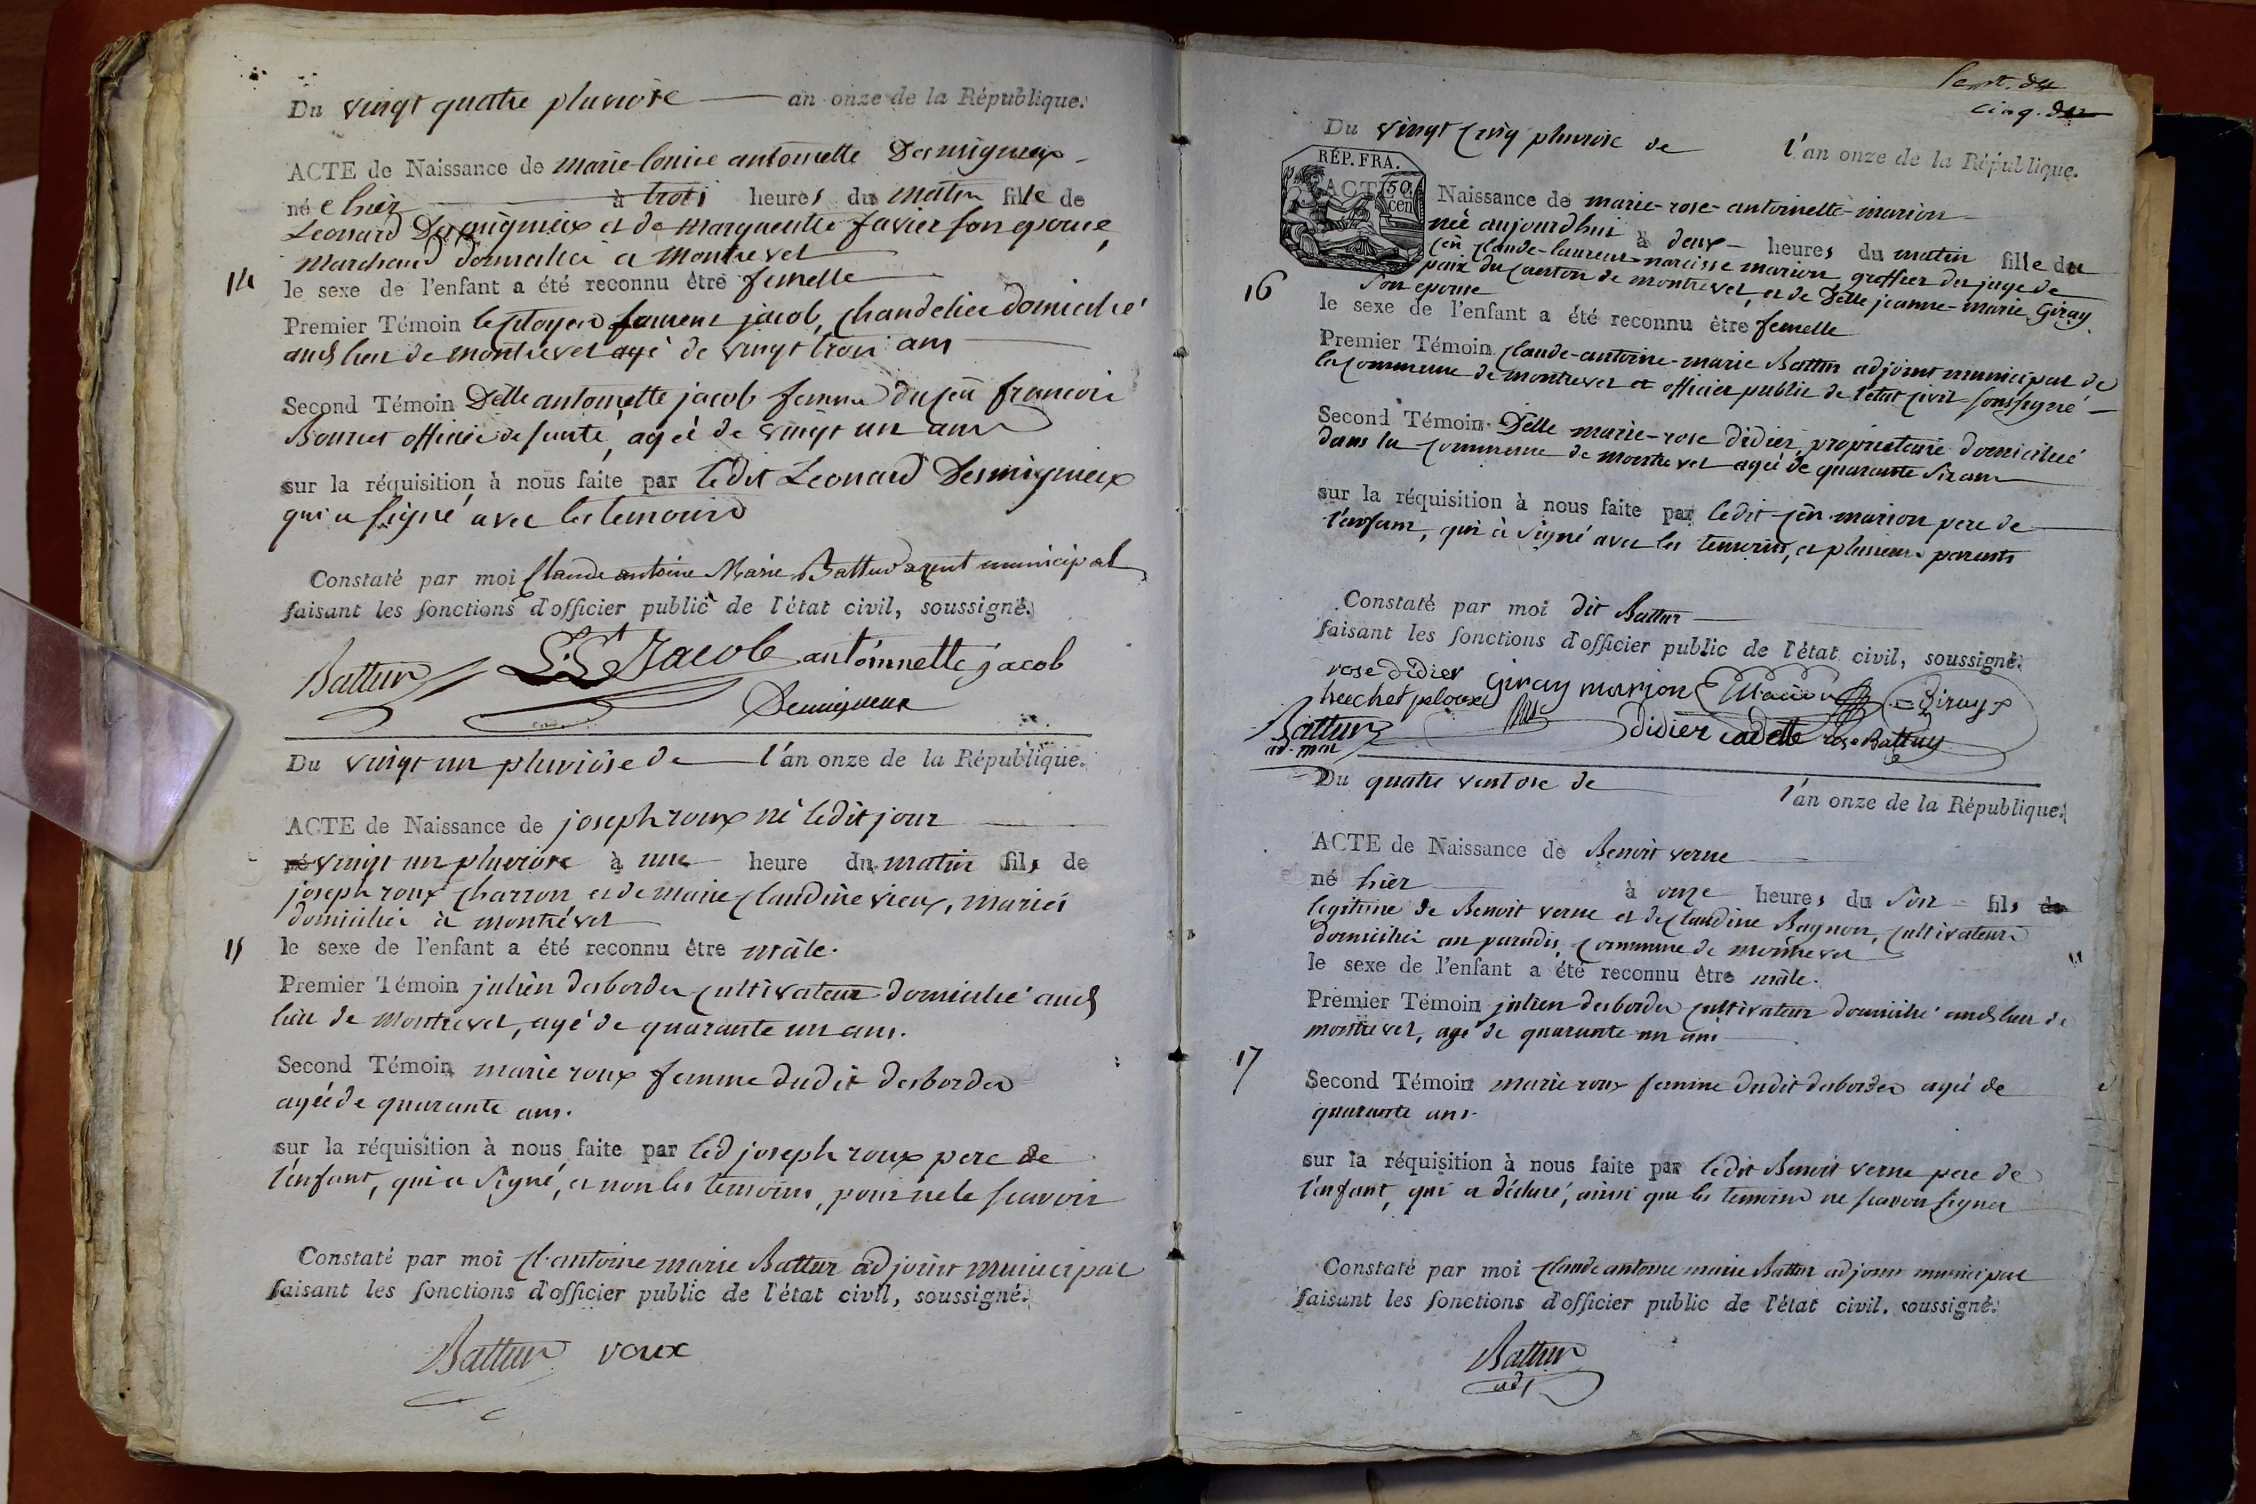 Du vingt quatre pluviose an onze de la République.
ACTE de Naissance de marie louise antoinette Desmigneux
née hier à trois heures du matin fille de
Leonard Desmigneux et de marguerite favier son epouse,
marchand domicilié à Montrevel
14
le sexe de l'enfant a été reconnu être femelle
Premier Témoin le Citoyen laurent jacob, chandelier domicilié
aud lieu de montrevel agé de vingt trois ans
Second Témoin Delle antoinette jacob femme du cen francois
Bonnet officier de santé, agée de vingt un ans
sur la réquisition à nous faite par ledit Leonard Desmigneux
qui a signé avec les temoins
Constaté par moi Claude antoine Marie Battur agent municipal
faisant les fonctions d'officier public de l'état civil, soussigné.
Battur Jacob antoinnette jacob
Desmigneux
Du vingt un pluviôse de l'an onze de la République.
ACTE de Naissance de joseph roux né ledit jour
né vingt un pluviose à une heure du matin fils de
joseph roux charron et de marie claudine vieux, mariés
domiciliés à montrével
15
le sexe de l'enfant a été reconnu être mâle.
Premier Témoin julien desbordes cultivateur domicilié aud
lieu de Montrevel, agé de quarante un ans.
Second Témoin marie roux femme dudit desbordes
agée de quarante ans.
sur la réquisition à nous faite par led joseph roux pere de
l'enfant, qui a signé, et non les temoins, pour ne le scavoir
Constaté par moi Cl. antoine marie Battur adjoint municipal
faisant les fonctions d'officier public de l'état civil, soussigné.
Battur roux
cinq.
Du vingt cinq pluviose de l'an onze de la République.
RÉP. FRA.
50 cen
ACTE Naissance de marie-rose-antoinette-marion
née aujourdhui à deux heures du matin fille du
cen claude-laurent-narcisse marion, greffier du juge de
paix du canton de montrevel, et de Delle jeanne-marie Giray
son epouse
16
le sexe de l'enfant a été reconnu être femelle
Premier Témoin claude-antoine-marie Battur adjoint municipal de
la commune de montrevel et officier public de l'etat civil soussigné
Second Témoin Delle marie-rose didier, proprietaire domiciliée
dans la commune de montrevel agée de quarante six ans
sur la réquisition à nous faite par ledit cen marion pere de
l'enfant, qui à signé avec les temoins, et plusieurs parents
Constaté par moi dit Battur
faisant les fonctions d'officier public de l'état civil, soussigné.
rose didier Giray marion Marion Giray
Battur didier cadette rose Battur
ad. mal
Du quatre ventose de l'an onze de la République.
ACTE de Naissance de Benoit verne
né hier à onze heures du soir fils de
legitime de Benoit verne et de Claudine Bagnon, cultivateurs
domiciliés au paradis, commune de montrevel
le sexe de l'enfant a été reconnu être mâle.
Premier Témoin julien desbordes cultivateur domicilié aud lieu de
montrevel, agé de quarante un ans
17
Second Témoin marie roux femme dudit desbordes agée de
quarante ans.
sur la réquisition à nous faite par ledit Benoit verne pere de
l'enfant, qui a déclaré, ainsi que les temoins ne scavoir signer
Constaté par moi Claude antoine marie Battur adjoint municipal
faisant les fonctions d'officier public de l'état civil, soussigné.
Battur
adj